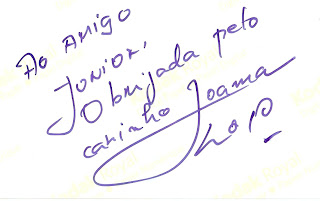 Ao Amigo
Junior,
Obrigada pelo
carinho Joama